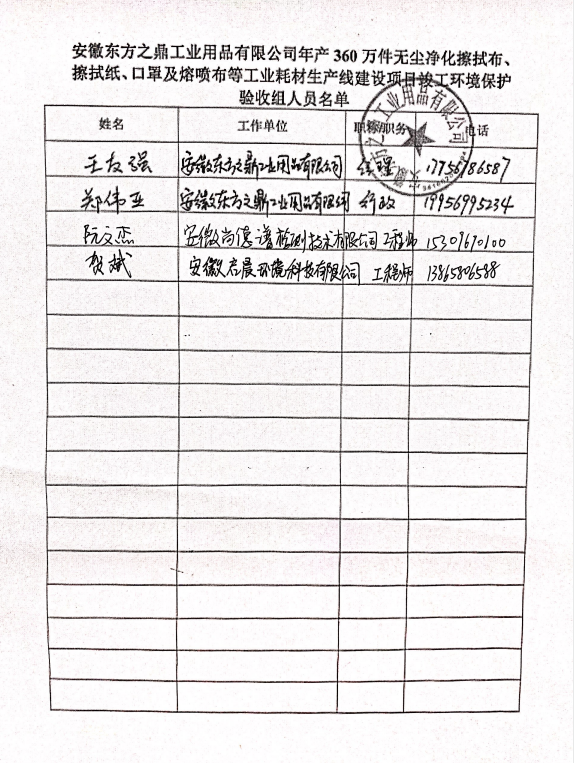 安徽东方之鼎工业用品有限公司年产 360 万件无尘净化擦拭布、
擦拭纸、口罩及熔喷布等工业耗材生产线建设项目竣工环境保护
验收组人员名单
姓名 工作单位 职称/职务 电话
王友强 安徽东方之鼎工业用品有限公司 经理 17756986587
郑伟亚 安徽东方之鼎工业用品有限公司 行政 19956995234
阮文杰 安徽尚德谱检测技术有限公司 工程师 15309690100
贺斌 安徽启晨环境科技有限公司 工程师 13865806588